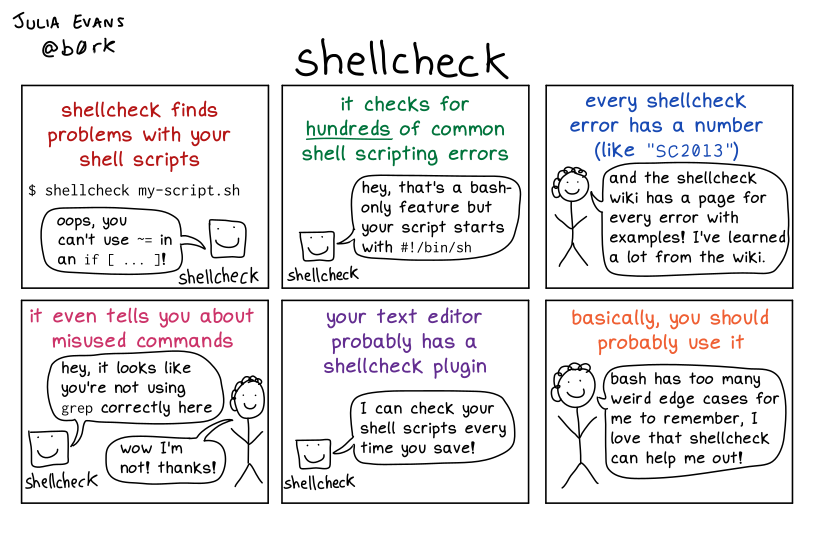 JULIA EVANS
@b0rk
shellcheck
shellcheck finds
problems with your
shell scripts
$ shellcheck my-script.sh
oops, you
can't use ~= in
an if [ ... ]!
shellcheck
it checks for
hundreds of common
shell scripting errors
hey, that's a bash-
only feature but
your script starts
with #!/bin/sh
shellcheck
every shellcheck
error has a number
(like "SC2013")
and the shellcheck
wiki has a page for
every error with
examples! I've learned
a lot from the wiki.
it even tells you about
misused commands
hey, it looks like
you're not using
grep correctly here
wow I'm
not! thanks!
shellcheck
your text editor
probably has a
shellcheck plugin
I can check your
shell scripts every
time you save!
shellcheck
basically, you should
probably use it
bash has too many
weird edge cases for
me to remember, I
love that shellcheck
can help me out!